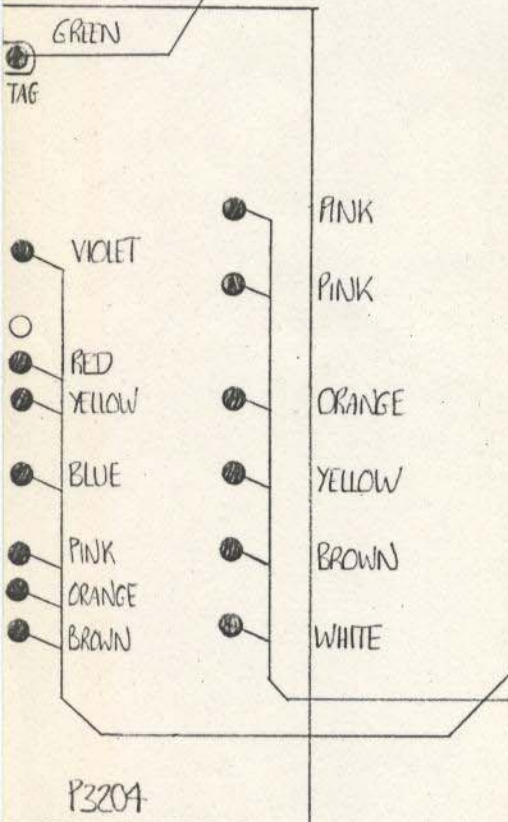 GREEN
TAG
VIOLET
RED
YELLOW
BLUE
PINK
ORANGE
BROWN
PINK
PINK
ORANGE
YELLOW
BROWN
WHITE
P3204